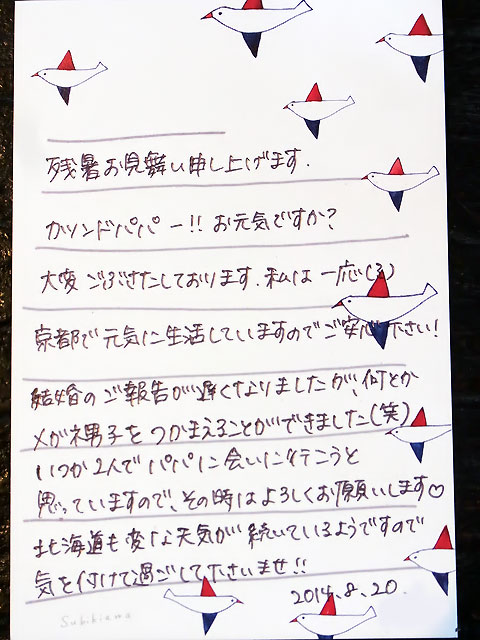 残暑お見舞い申し上げます.
カツンドパパー!! お元気ですか?
大変ごぶさたしております. 私は一応(3)
京都で元気に生活していますのでご安心下さい!
結婚のご報告が遅くなりましたが、何とか
メガネ男子をつかまえることができました(笑)
いつか2人でパパに会いに行こうと
思っていますので、その時はよろしくお願いします♡
北海道も変な天気が続いているようですので
気を付けて過ごして下さいませ!!
2014.8.20.